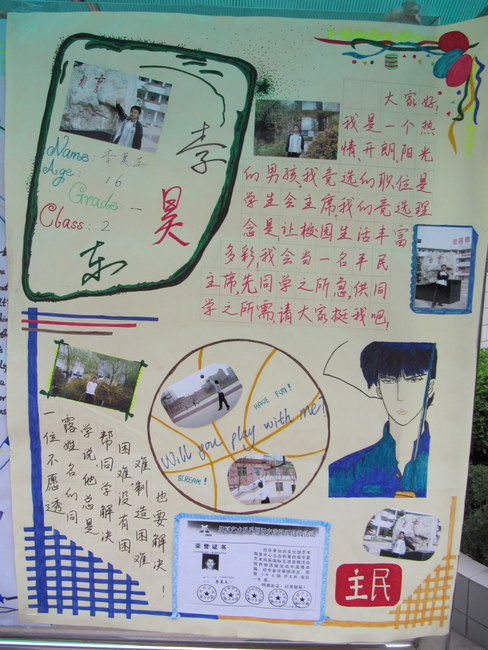 Name: 李昊东
Age: 16
Grade: 一
Class: 2
李
昊
东
大家好,
我是一个热
情,开朗,阳光
的男孩,我竞选的职位是
学生会主席,我的竞选理
念是让校园生活丰富
多彩,我会当一名平民
主席,先同学之所急,供同
学之所需,请大家挺我吧!
一位不愿透
露姓名的同
学说他总是
帮同学解决
困难没有困
难制造困难
也要解决!
HAVE FUN!
Will you play with me!
SCREAM!
荣誉证书
主民